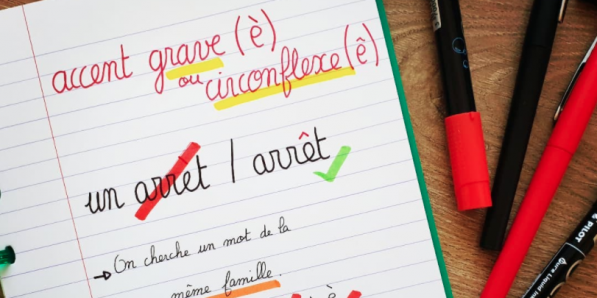 accent grave (è)
ou circonflexe (ê)
un arret / arrêt
On cherche un mot de la
même famille.
PILOT